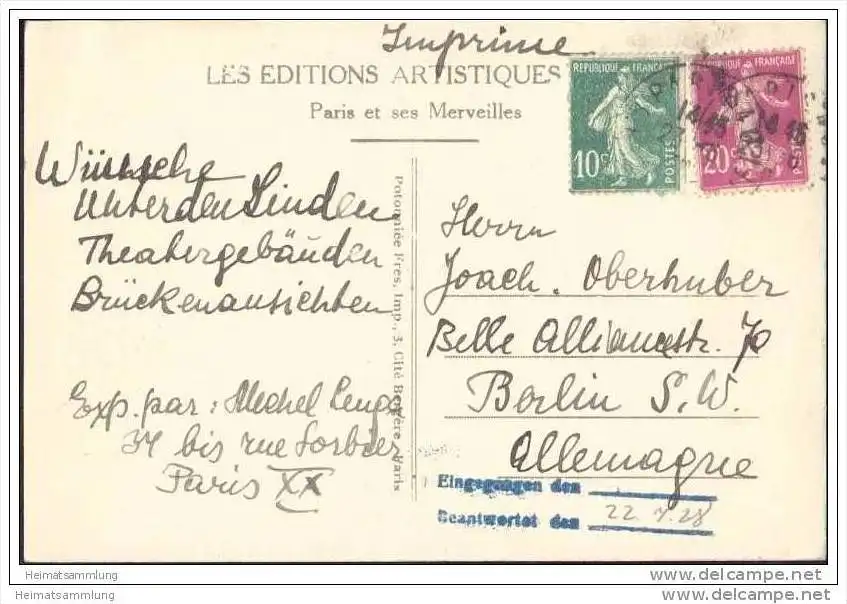 Imprimé
LES EDITIONS ARTISTIQUES
Paris et ses Merveilles
REPUBLIQUE FRANÇAISE
10c
POSTES
REPUBLIQUE FRANÇAISE
20c
POSTES
14 45
Wünsche
Unter den Linden
Theatergebäuden
Brückenansichten
Exp. par: Michel
34 bis rue Sorbier
Paris XX
Potonniée Fres, Imp., 3, Cité Paris
Herrn
Joach. Oberhuber
Belle Alliancestr. 70
Berlin S.W.
Allemagne
Eingegangen den
Beantwortet den 22.7.28
Heimatsammlung
Heimatsammlung
www.delcampe.net
www.delcampe.net